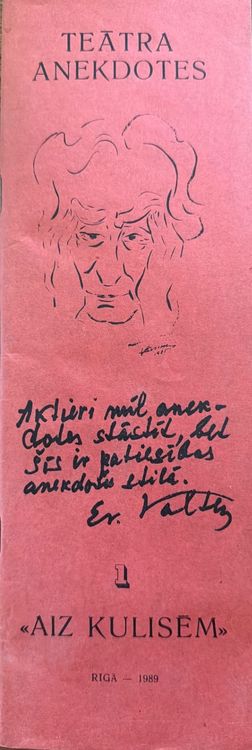 TEĀTRA
ANEKDOTES
Aktieri mīl anek-
dotes stāstīt, bet
šīs ir patiesības
anekdošu stilā.
Ev. Valters
1
«AIZ KULISĒM»
RĪGĀ — 1989